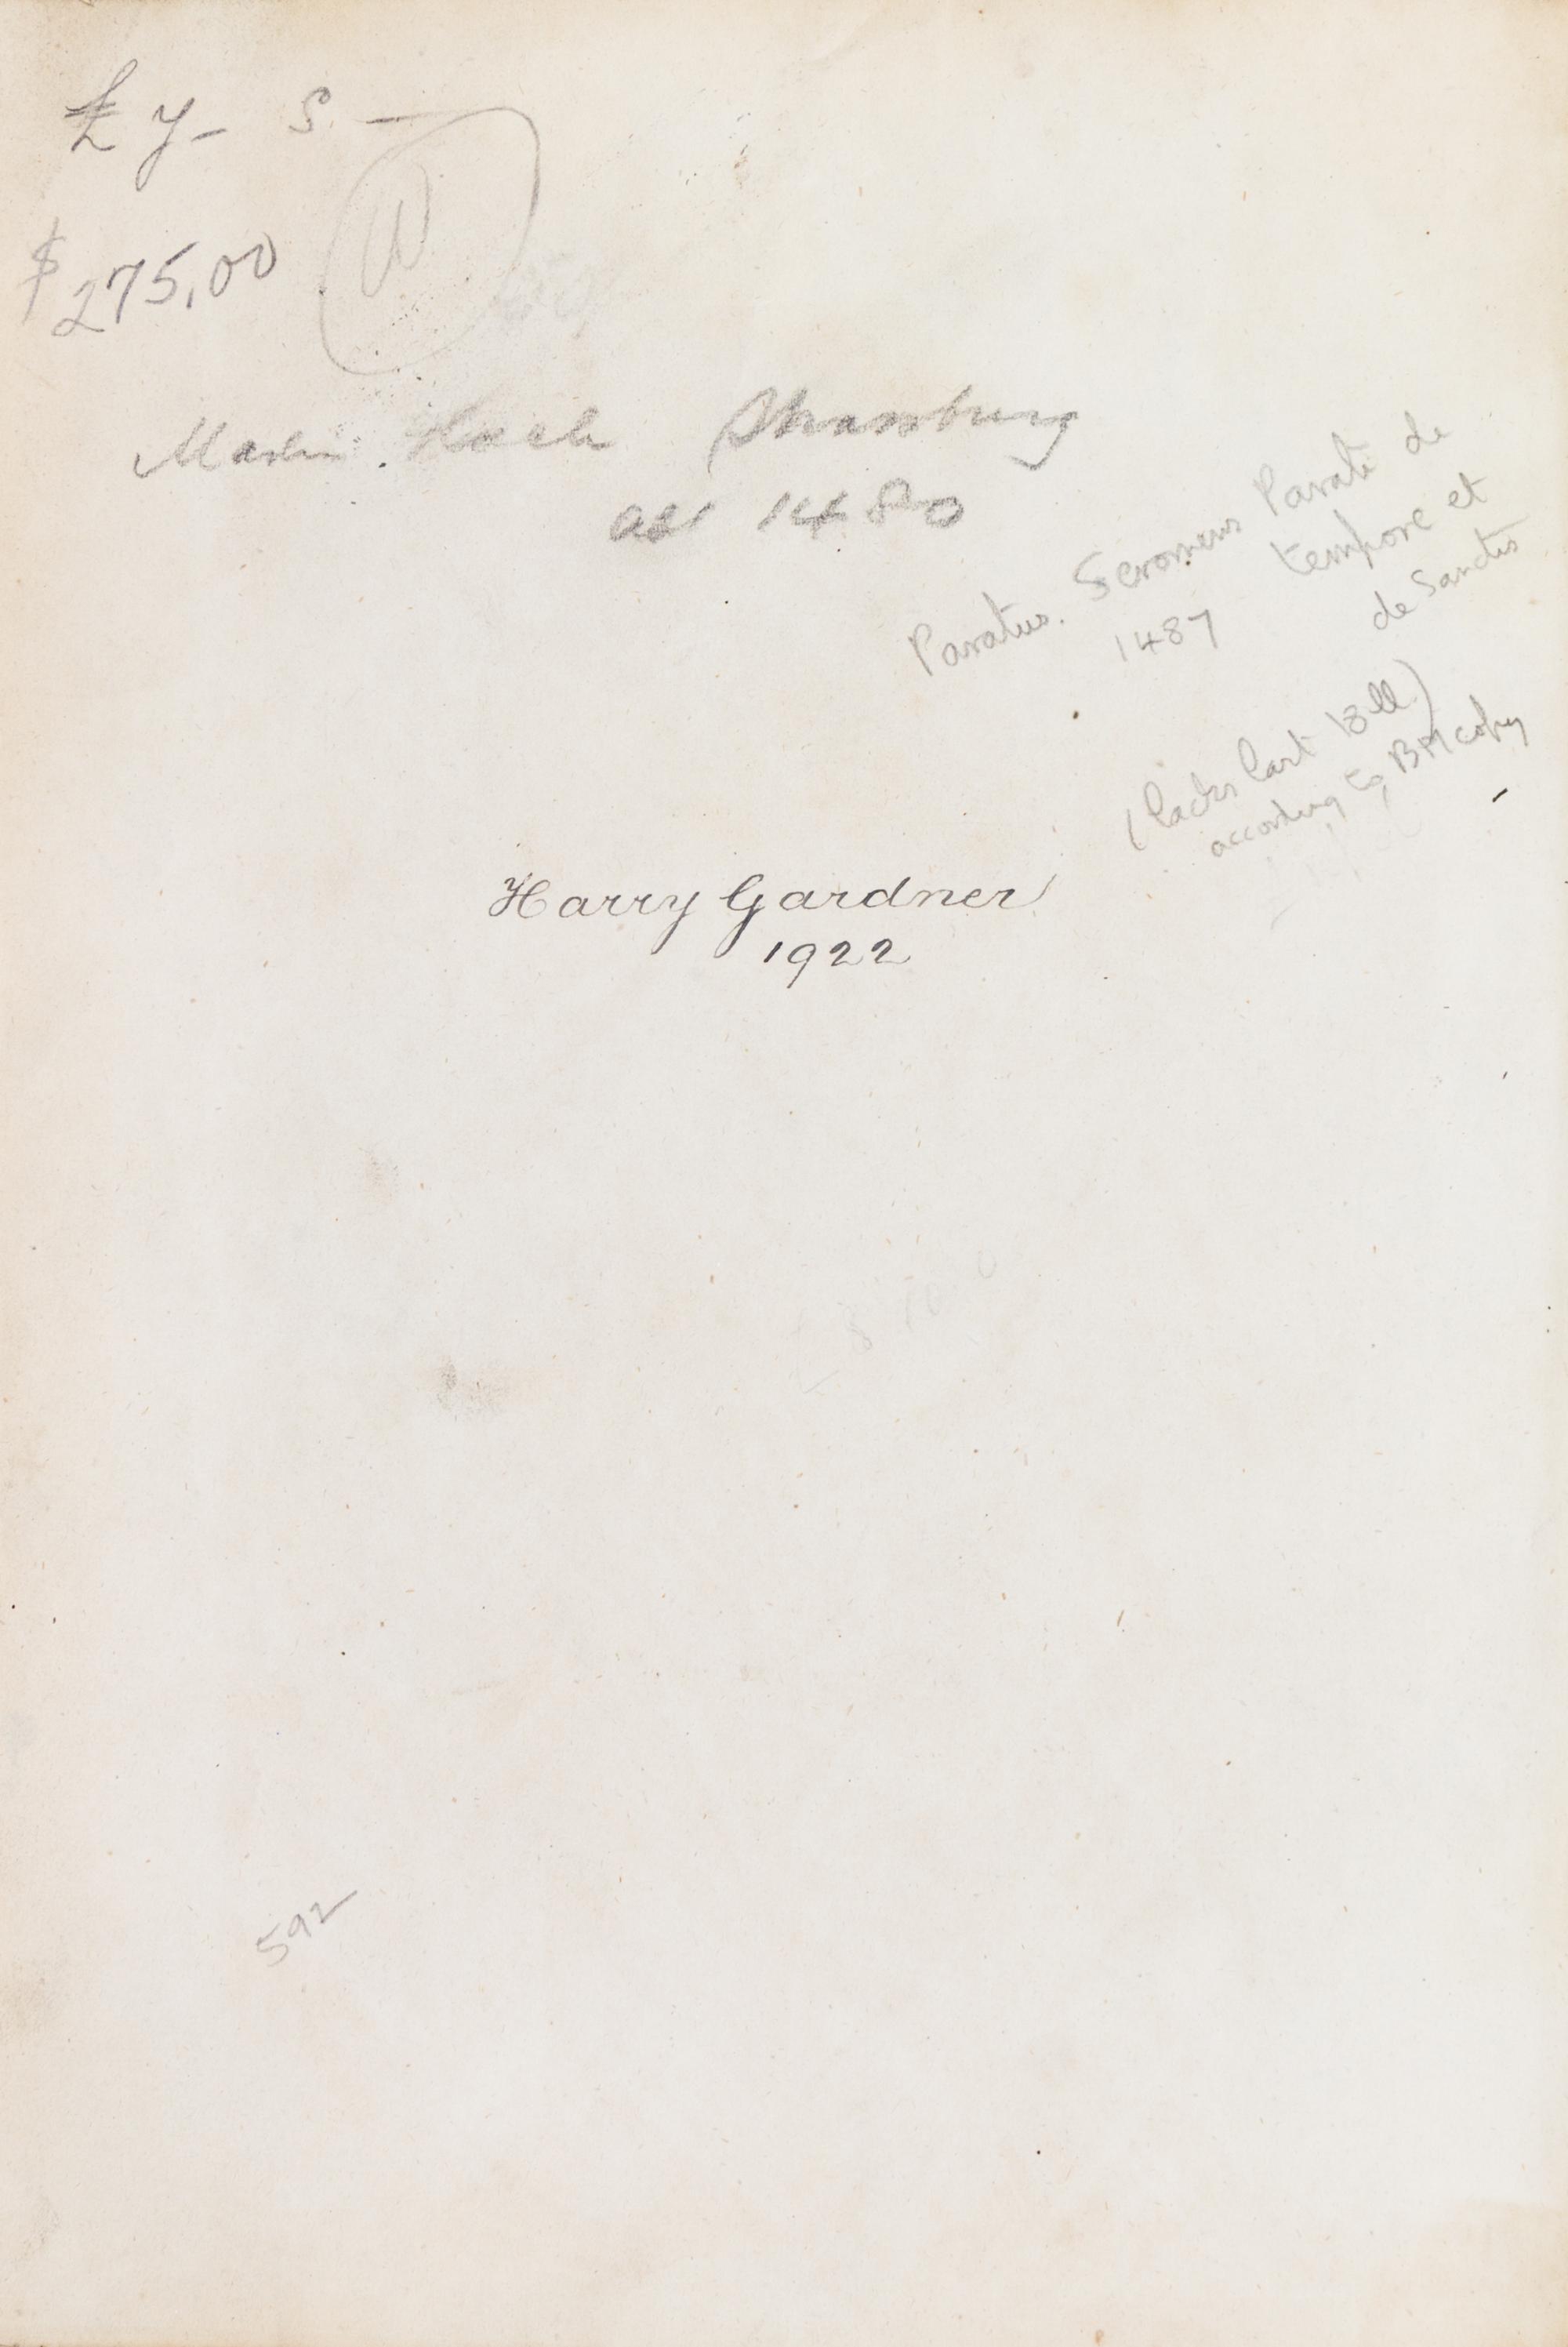 £ y - s. -
$275,00
Martin Strassburg
1480
Paratus. Seromens Parati de
tempore et
1487 de Sanctis
(lacks last 18 ll.)
according to BM copy
Harry Gardner
1922
592